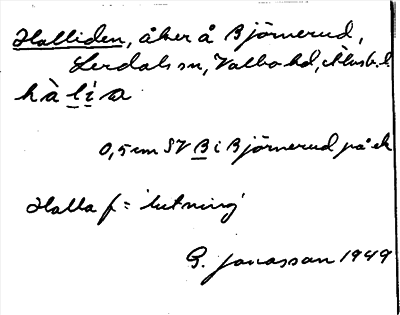 Halliden, åker å Björnerud,
Lerdals sn, Valbo hd, Älvsb. l
hàlía
0,5 cm SV B i Björnerud på ek
Halla f = 'lutning'
G. Jonasson 1949